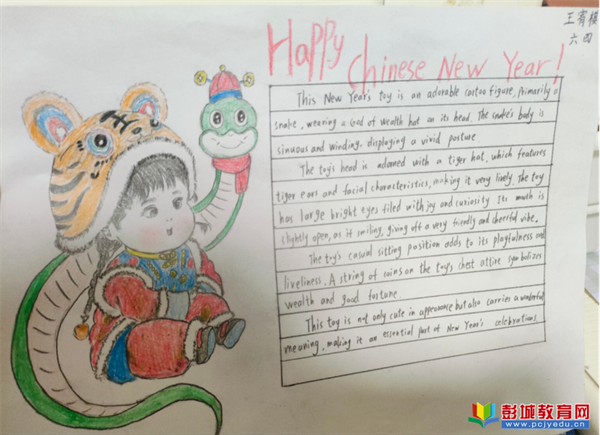 王有棋
六四
Happy Chinese New Year!
This New Year's toy is an adorable cartoo figure, Primarily a
snake, wearing a God of wealth hat on its head. The snake's body is
sinuous and winding, displaying a vivid posture
The toy's head is adorned with a tiger hat, which features
tiger ears and facial characteristics, making it very lively. The toy
has large bright eyes filled with joy and curiosity Its mouth is
slightly open, as if smiling, giving off a very friendly and cheerful vibe.
The toy's casual sitting position adds to its playfulness and
liveliness. A string of coins on the toy's chest attire symbolizes
wealth and good fortune.
This toy is not only cute in appearance but also carries a wonderful
meaning, making it an essential part of New Year's celebrations.
彭城教育网
www.pcjyedu.cn